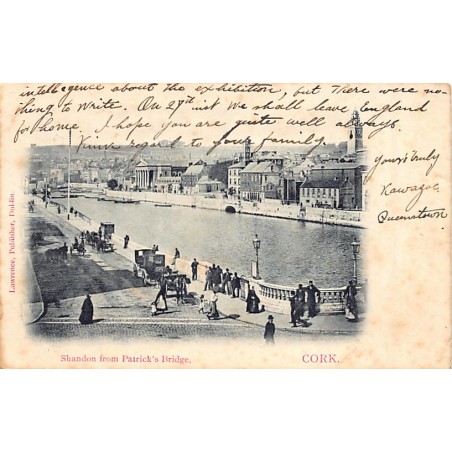 intelligence about the exhibition, but There were no-
thing to write. On 27th inst we shall leave England
for home. I hope you are quite well always.
Kind regard to your family.
yours truly
Kawagoe
Queenstown
Lawrence, Publisher, Dublin.
Shandon from Patrick's Bridge,
CORK.